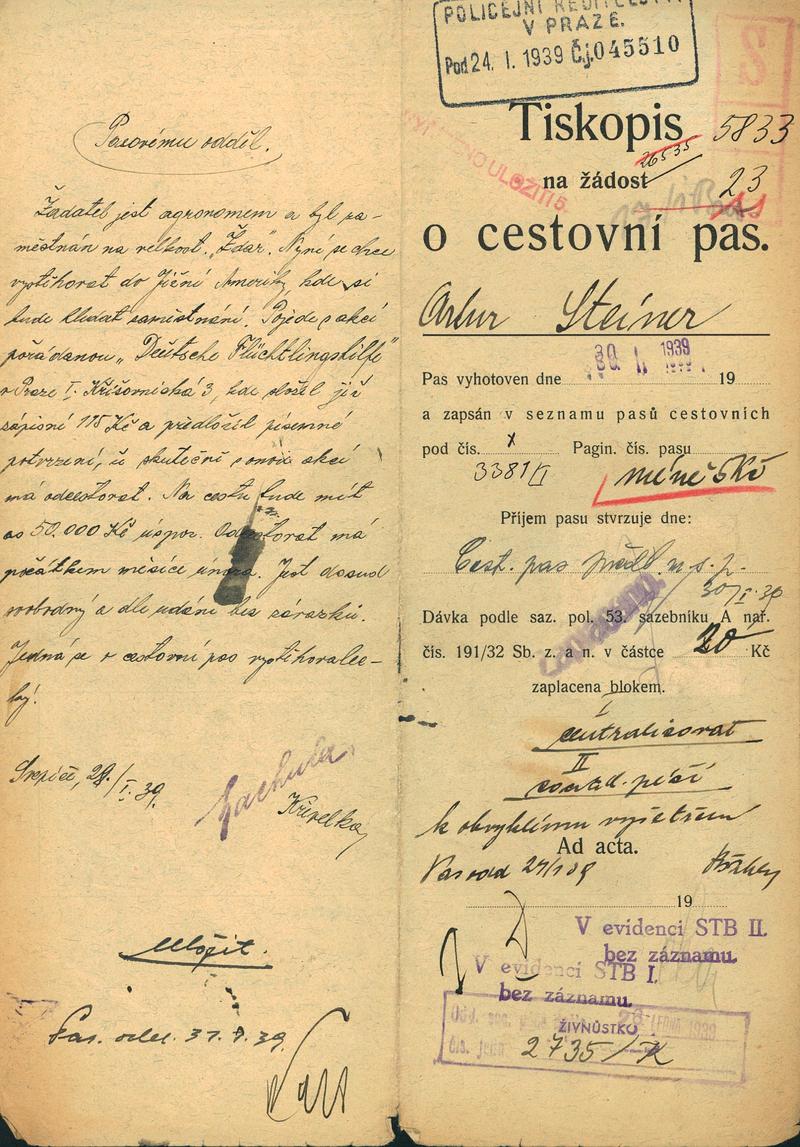 Pasovému odděl.
Žadatel jest agronomem a byl za-
městnán na velkost. „Ždar“. Nyní se chce
vystěhovat do Jižní Ameriky, kde si
bude hledat zaměstnání. Pojede s akcí
pořádanou „Deutsche Flüchtlingshilfe“
v Praze I. Křižovnická 3, kde složil již
zápisní 115 Kč a předložil písemné
potvrzení, že skutečně s onou akcí
má odcestovat. Na cestu bude mít
as 50.000 Kč úspor. Odcestovat má
počátkem měsíce února. Jest dosud
svobodný a dle udání bez závazků.
Jedná se o cestovní pas vystěhovalec-
ký.
28./I. 39.
Uložit.
Pas. odd.
POLICEJNÍ ŘEDITELSTVÍ
V PRAZE.
Pod 24. I. 1939 Čj. 045510
S
Tiskopis 5833
26535
na žádost 23
o cestovní pas.
Artur Steiner
Pas vyhotoven dne 30 I. 1939 19
a zapsán v seznamu pasů cestovních
pod čís. x Pagin. čís. pasu
3381/II
Příjem pasu stvrzuje dne:
Cest. pas
30/I. 39
Dávka podle saz. pol. 53. sazebníku A nař.
čís. 191/32 Sb. z. a n. v částce 20 Kč
zaplacena blokem.
I
centralisovat
II
k obvyklému vyšetření
Ad acta.
Pas odd 24/1 39
19
V evidenci STB II.
bez záznamu.
V evidenci STB I.
bez záznamu.
28. LEDNA 1939
ŽIVNŮSTKO
2735/K